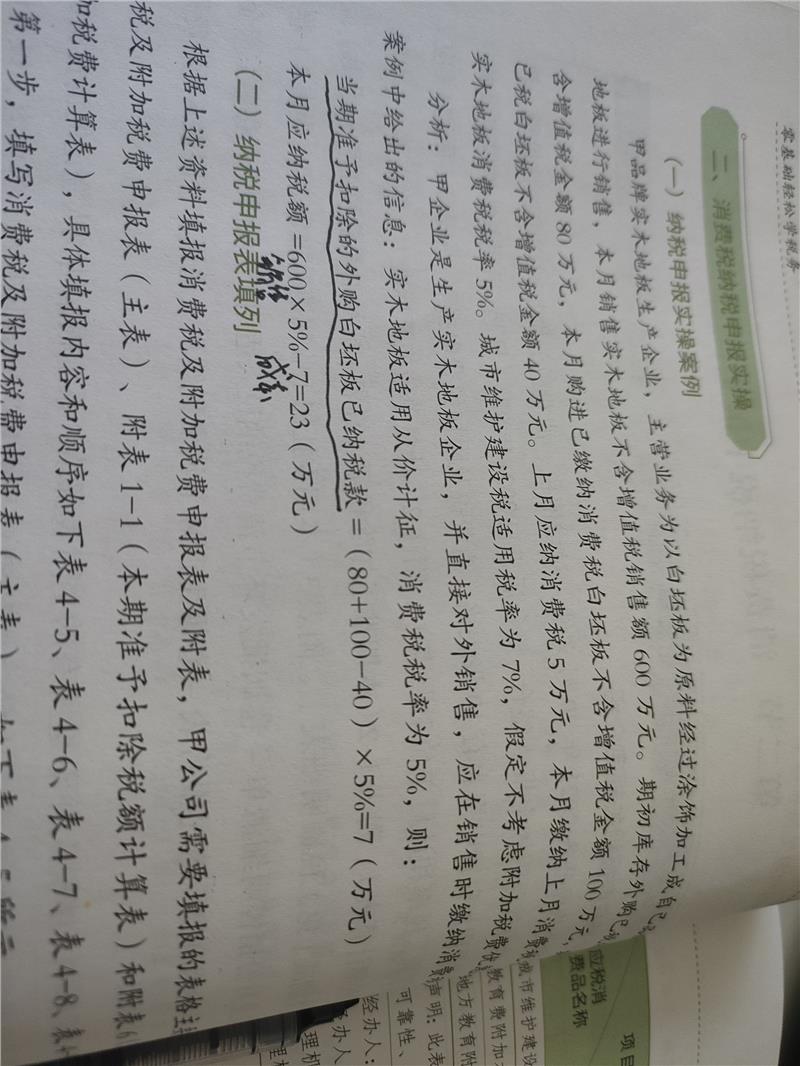 零基础轻松学税务
二、消费税纳税申报实操
（一）纳税申报实操案例
甲品牌实木地板生产企业，主营业务为以白坯板为原料经过涂饰加工成自己
地板进行销售，本月销售实木地板不含增值税销售额 600 万元。期初库存外购已
含增值税金额 80 万元，本月购进已缴纳消费税白坯板不含增值税金额 100 万元，
已税白坯板不含增值税金额 40 万元。上月应纳消费税 5 万元，本月缴纳上月消费
实木地板消费税税率 5%。城市维护建设税适用税率为 7%，假定不考虑附加税费
分析：甲企业是生产实木地板企业，并直接对外销售，应在销售时缴纳消费
案例中给出的信息：实木地板适用从价计征，消费税税率为 5%，则：
当期准予扣除的外购白坯板已纳税款 =（80+100-40）×5%=7（万元）
本月应纳税额 =600×5%-7=23（万元）
成本
（二）纳税申报表填列
根据上述资料填报消费税及附加税费申报表及附表，甲公司需要填报的表格主
税及附加税费申报表（主表）、附表 1-1（本期准予扣除税额计算表）和附表6
加税费计算表），具体填报内容和顺序如下表 4-5、表 4-6、表 4-7、表 4-8、表4-
第一步，填写消费税及附加税费申报表（主表），如下表 4-5所示
项目
应税消
费品名称
城市维护建设
教育费附加
地方教育附
声明：此表
可靠性、
经办人：
经办人
理机